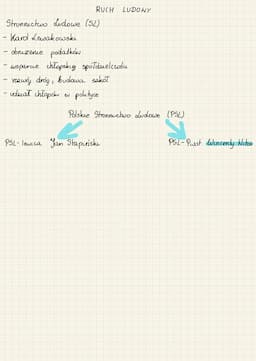 RUCH LUDOWY
Stronnictwo Ludowe (SL)
- Karol Lewakowski
- obniżenie podatków
- wsparcie chłopskiej spółdzielczości
- rozwój dróg, budowa szkół
- udział chłopów w polityce
Polskie Stronnictwo Ludowe (PSL)
PSL-Lewica Jan Stapiński PSL-Piast Wincenty Witos